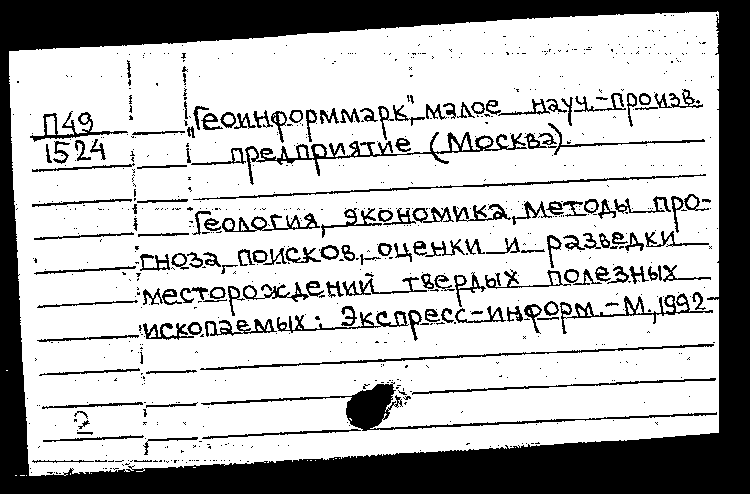 П49
1524
"Геоинформмарк", малое науч.-произв.
предприятие (Москва).
Геология, экономика, методы про-
гноза, поисков, оценки и разведки
месторождений твердых полезных
ископаемых: Экспресс-информ.-М.,1992-
2